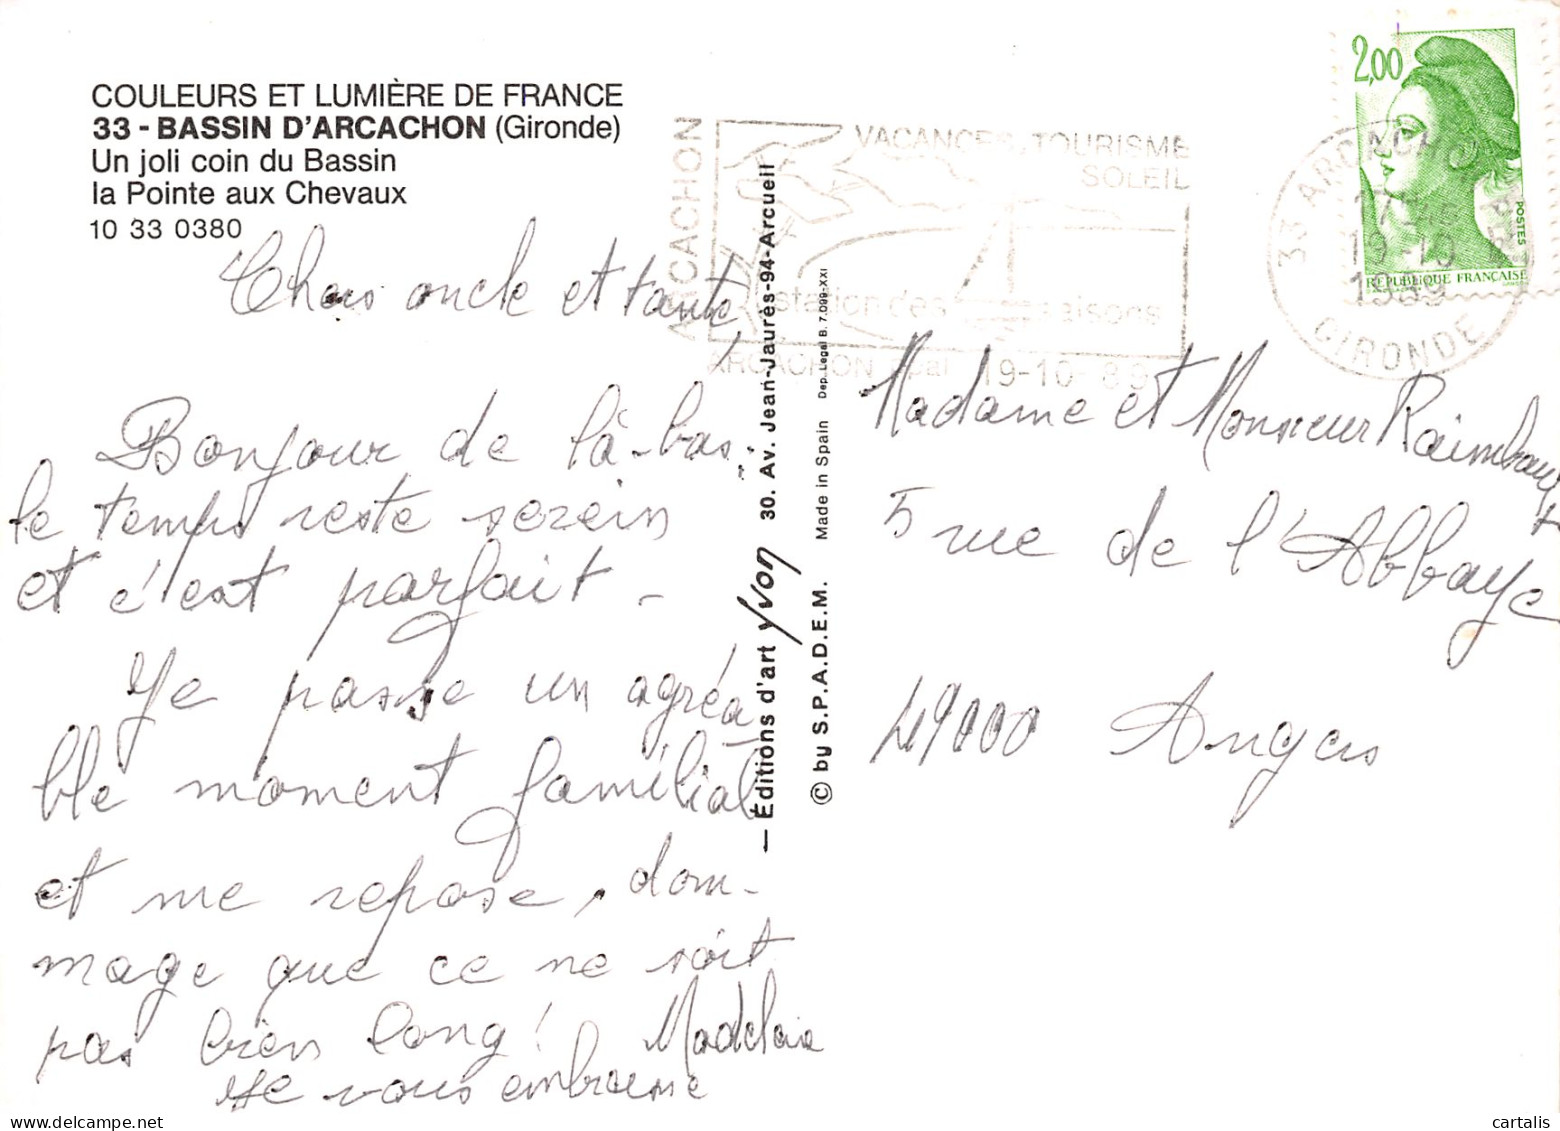 COULEURS ET LUMIÈRE DE FRANCE
33 - BASSIN D'ARCACHON (Gironde)
Un joli coin du Bassin
la Pointe aux Chevaux
10 33 0380
Chers oncle et tante,
Bonjour de là-bas,
le temps reste serein
et c'est parfait -
Je passe un agréa-
ble moment familial
et me repose, dom-
mage que ce ne soit
pas bien long!
Je vous embrasse
— Éditions d'art Yvon 30. Av. Jean-Jaurès-94-Arcueil
© by S.P.A.D.E.M. Made in Spain Dep. Legal B. 7.099-XXI
ARCACHON
VACANCES TOURISME
SOLEIL
station des saisons
ARCACHON Ppal 19-10-89
33 ARCACHON
19-10
1989
GIRONDE
2,00
POSTES
RÉPUBLIQUE FRANÇAISE
Madame et Monsieur Raimbault
5 rue de l'Abbaye
49000 Angers
cartalis